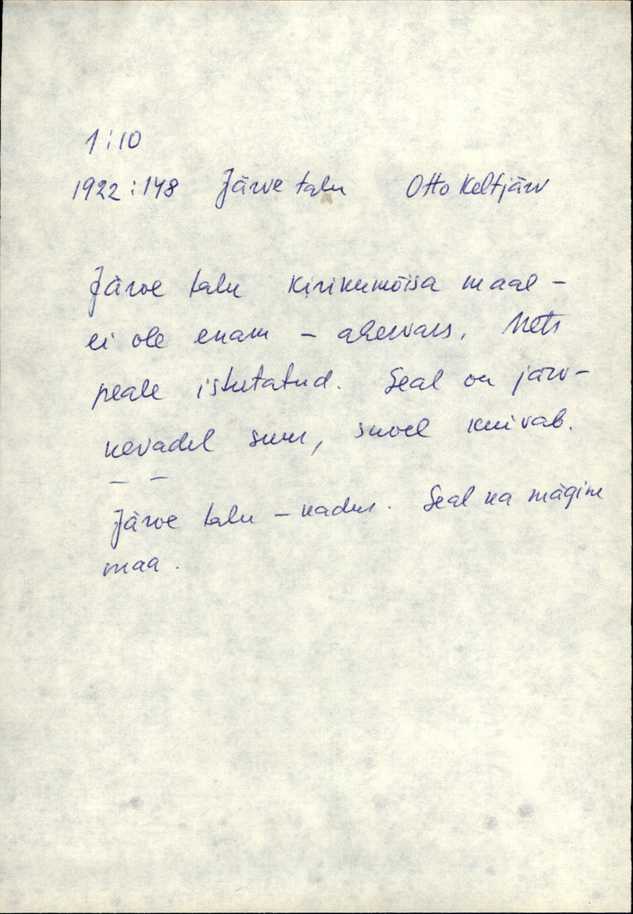 1:10
1922:148 Järve talu Otto Keltjärv
Järve talu Kirikumõisa maal -
ei ole enam - ahervars. Mets
peale istutatud. Seal on järv-
kevadel suur, suvel kuivab.
— —
Järve talu - kadus. Seal ka mägine
maa.